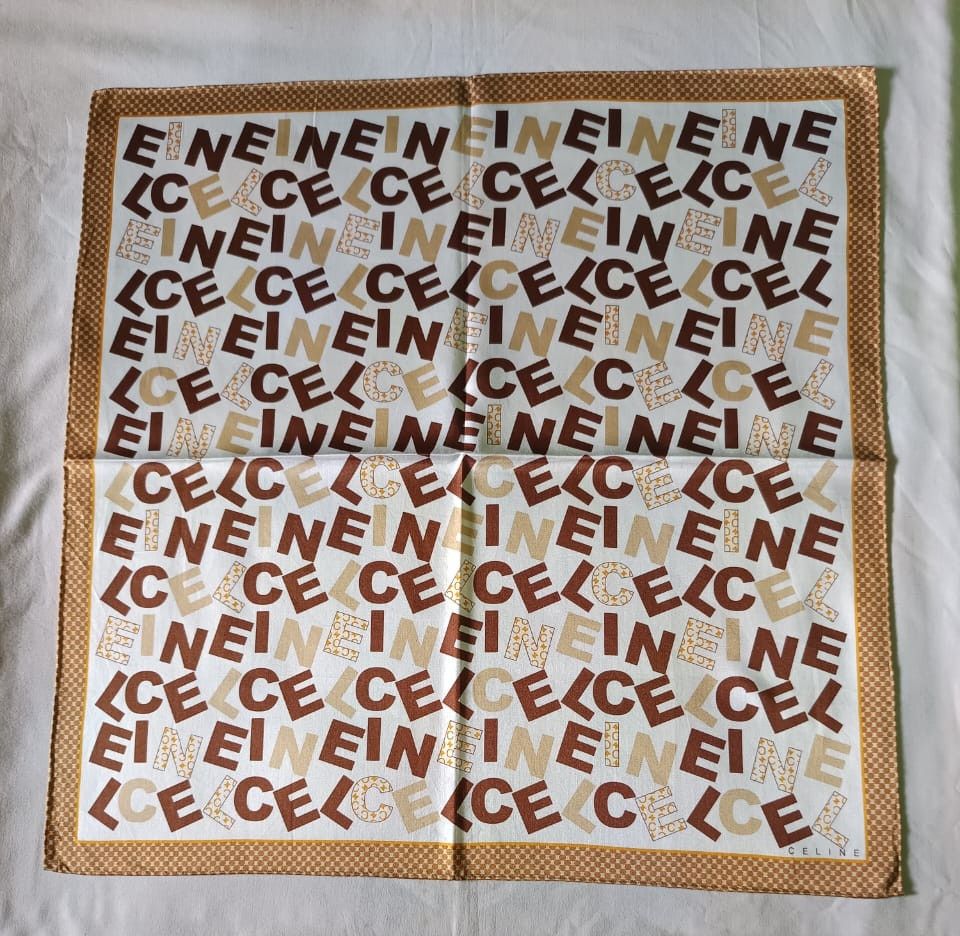 EINEINEINEINEINEINE
LCELCELCELCELCELCEL
EINEINEINEINEINEINE
LCELCELCELCELCELCEL
EINEINEINEINEINEINE
LCELCELCELCELCELCEL
EINEINEINEINEINEINE
LCELCELCELCELCELCEL
EINEINEINEINEINEINE
LCELCELCELCELCELCEL
EINEINEINEINEINEINE
LCELCELCELCELCELCEL
EINEINEINEINEINEINE
LCELCELCELCELCELCEL
CELINE